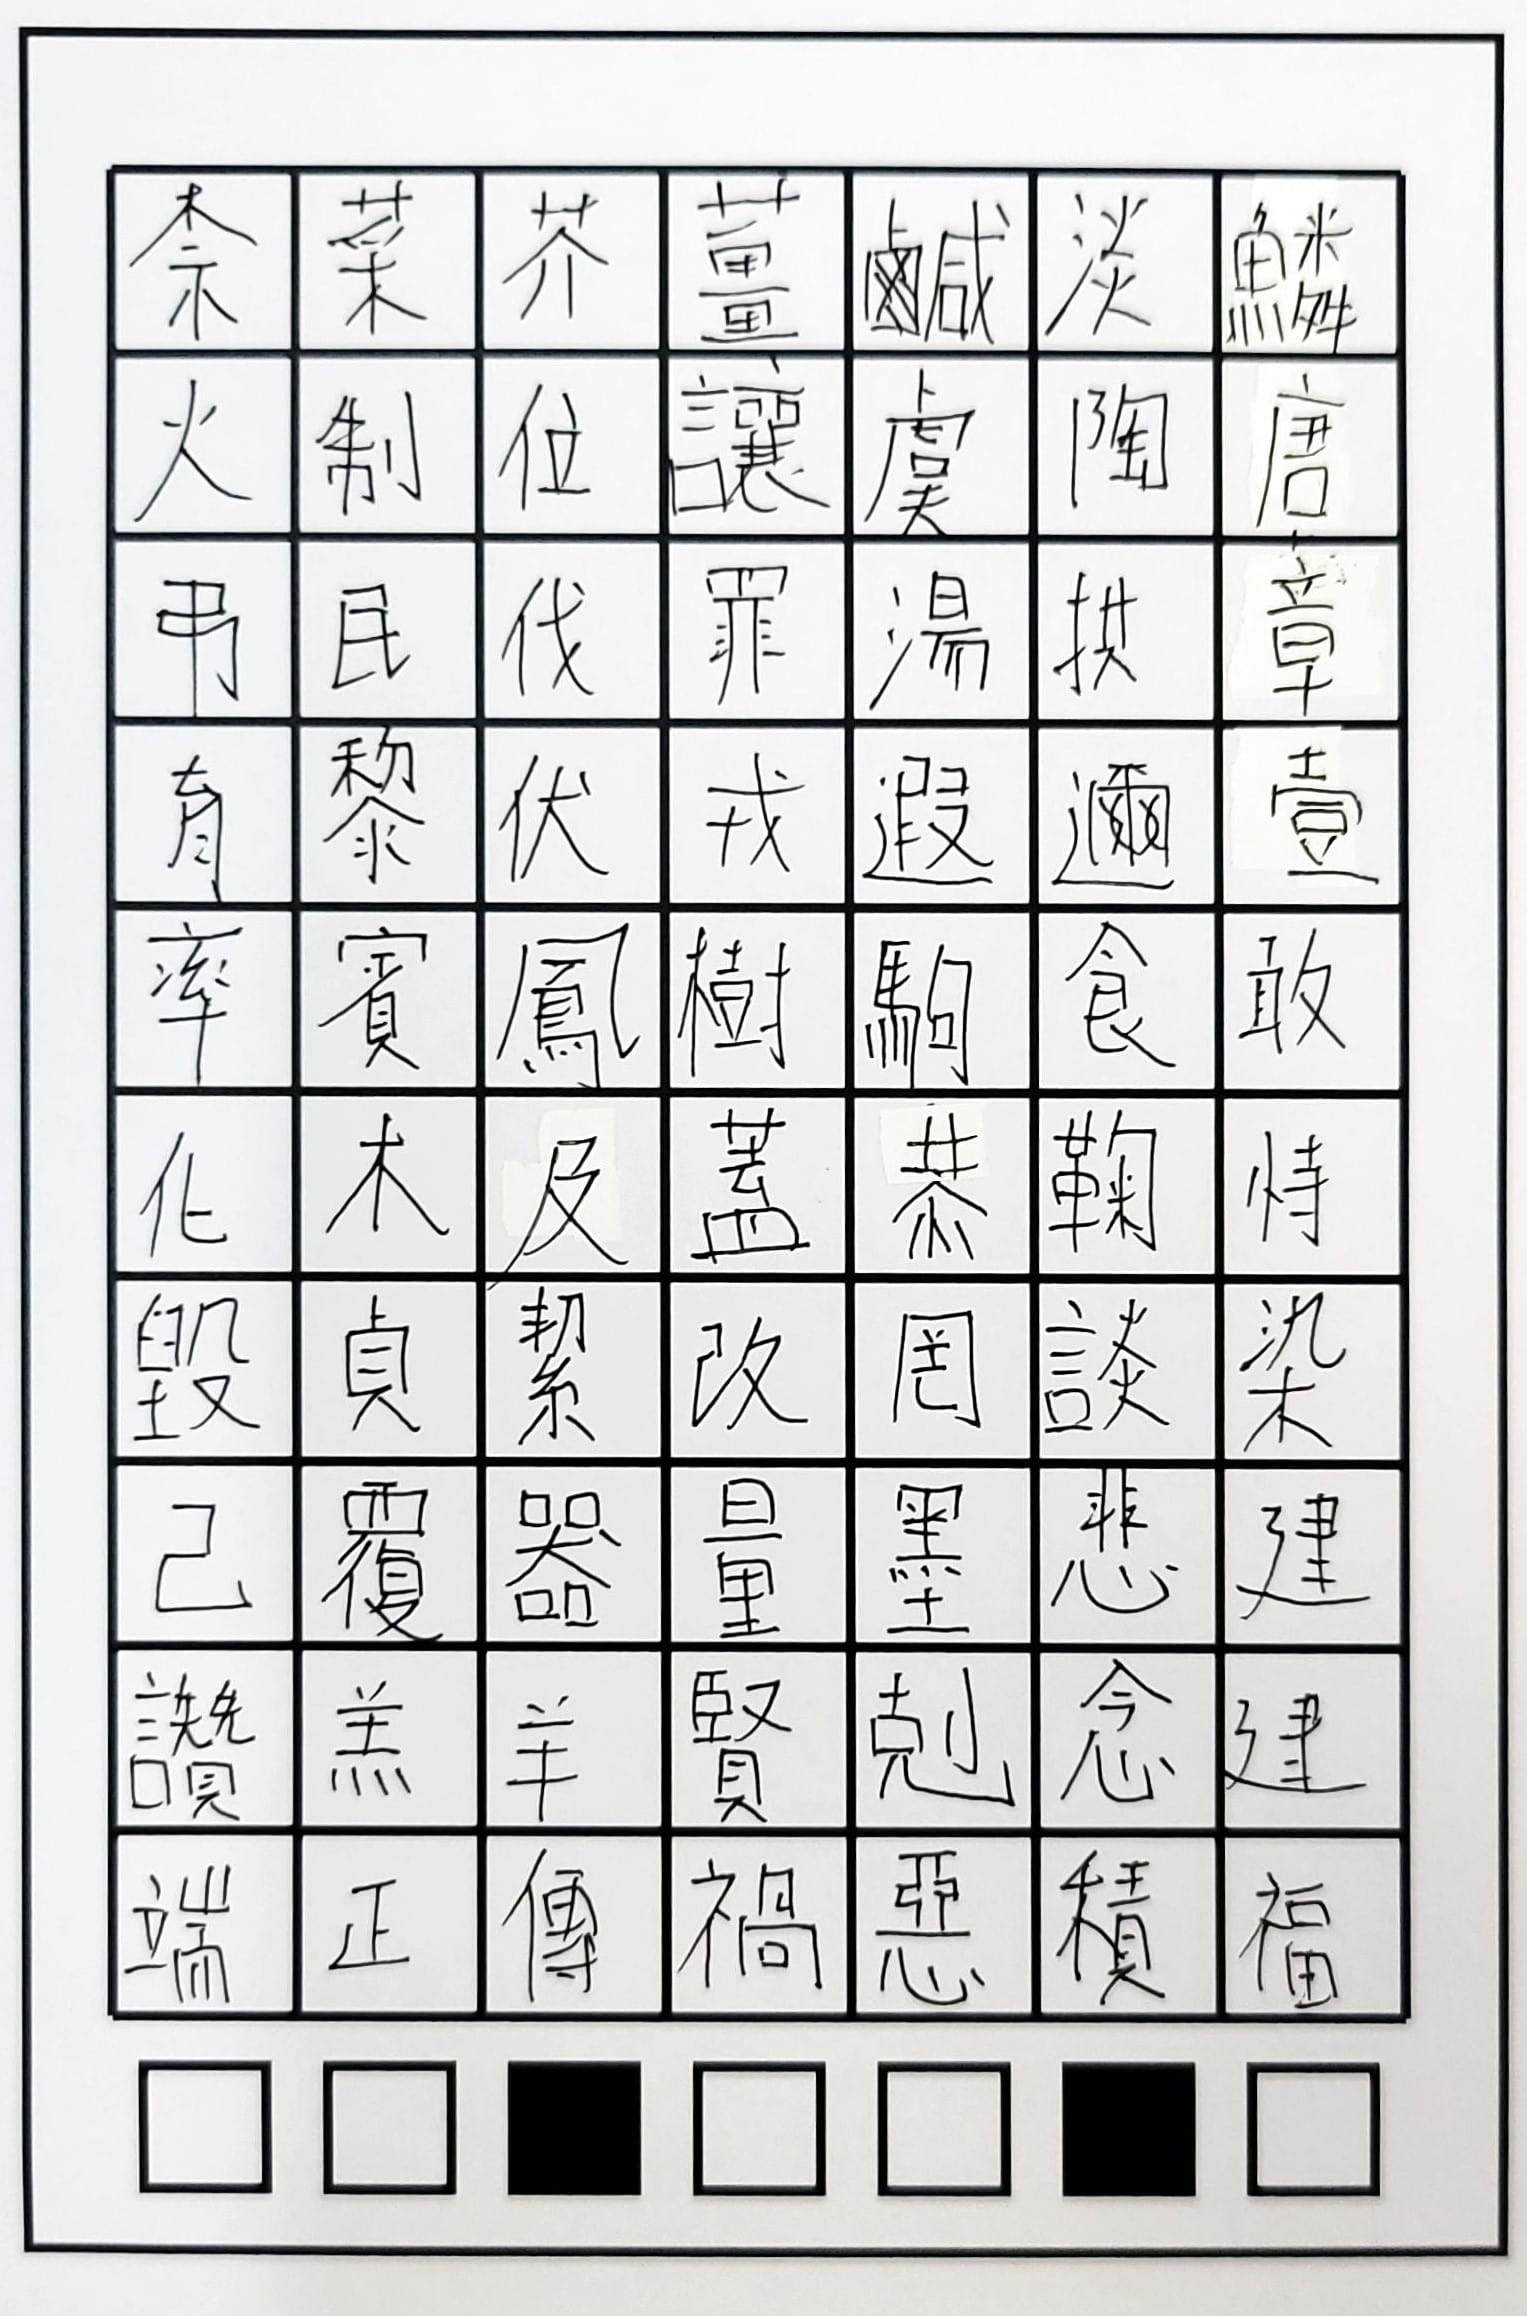 柰菜芥薑鹹淡鱗
火制位讓虞陶唐
弔民伐罪湯拱章
育黎伏戎遐邇壹
率賓鳳樹駒食敢
化木及蓋恭鞠恃
毀貞絜改罔談染
己覆器量墨悲建
讚羔羊賢剋念建
端正傳禍惡積福